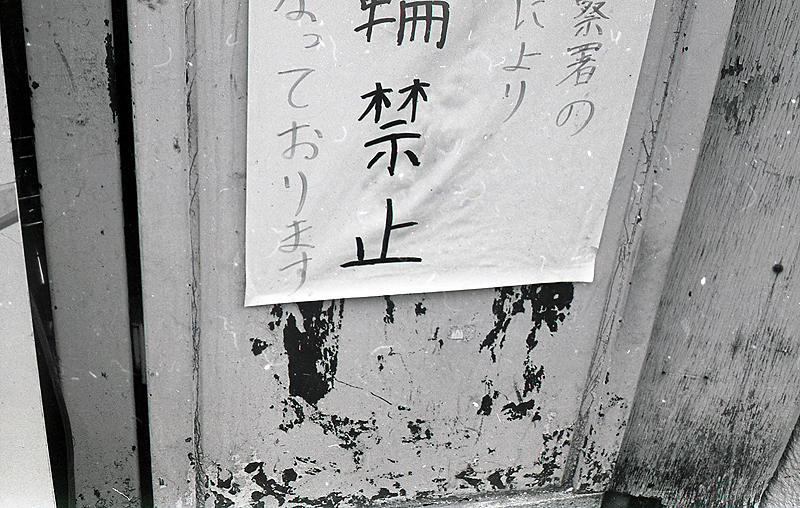 察署の
により
輪禁止
なっております